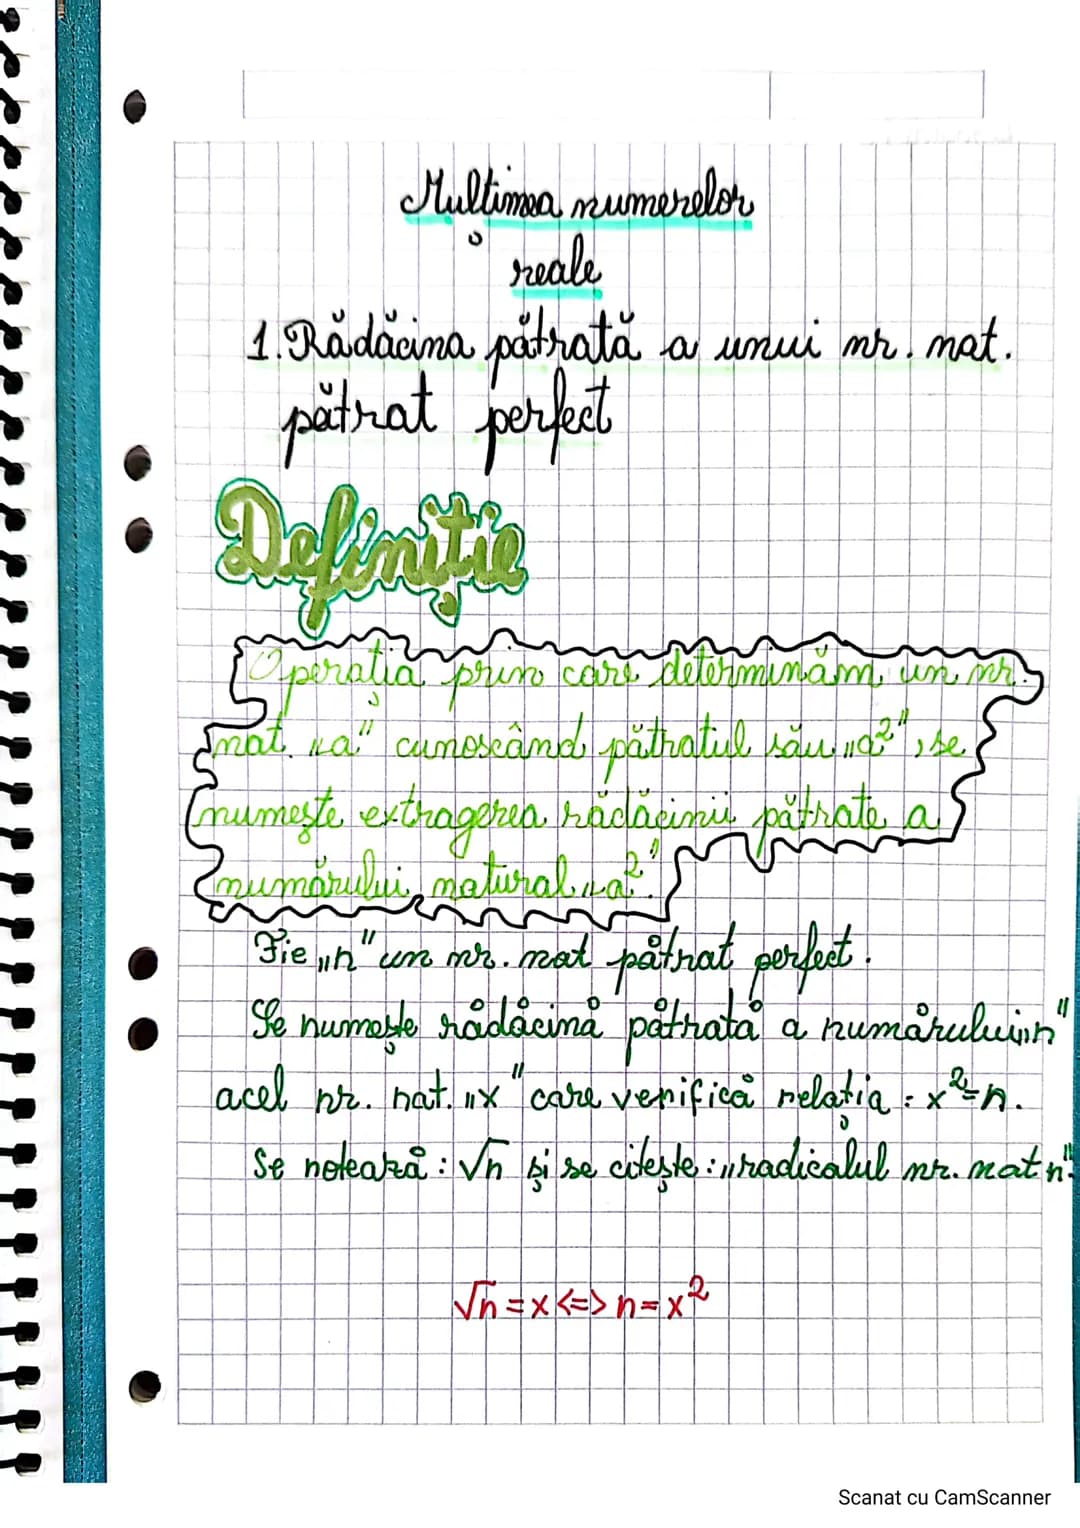 Mulțimea numerelor
reale
1. Rădăcina pătrată a unui nr. nat.
pătrat perfect
Definiție
Operația prin care determinăm un nr.
nat. „a" cunoscând pătratul său „a²", se
numește extragerea rădăcinii pătrate a
numărului natural „a²".
Fie „n" un nr. nat pătrat perfect.
Se numește rădăcină pătrată a numărului „n"
acel nr. nat. „x" care verifică relația : x²=n.
Se notează : √n și se citește : „radicalul nr. nat n".
√n = x <=> n = x²
Scanat cu CamScanner